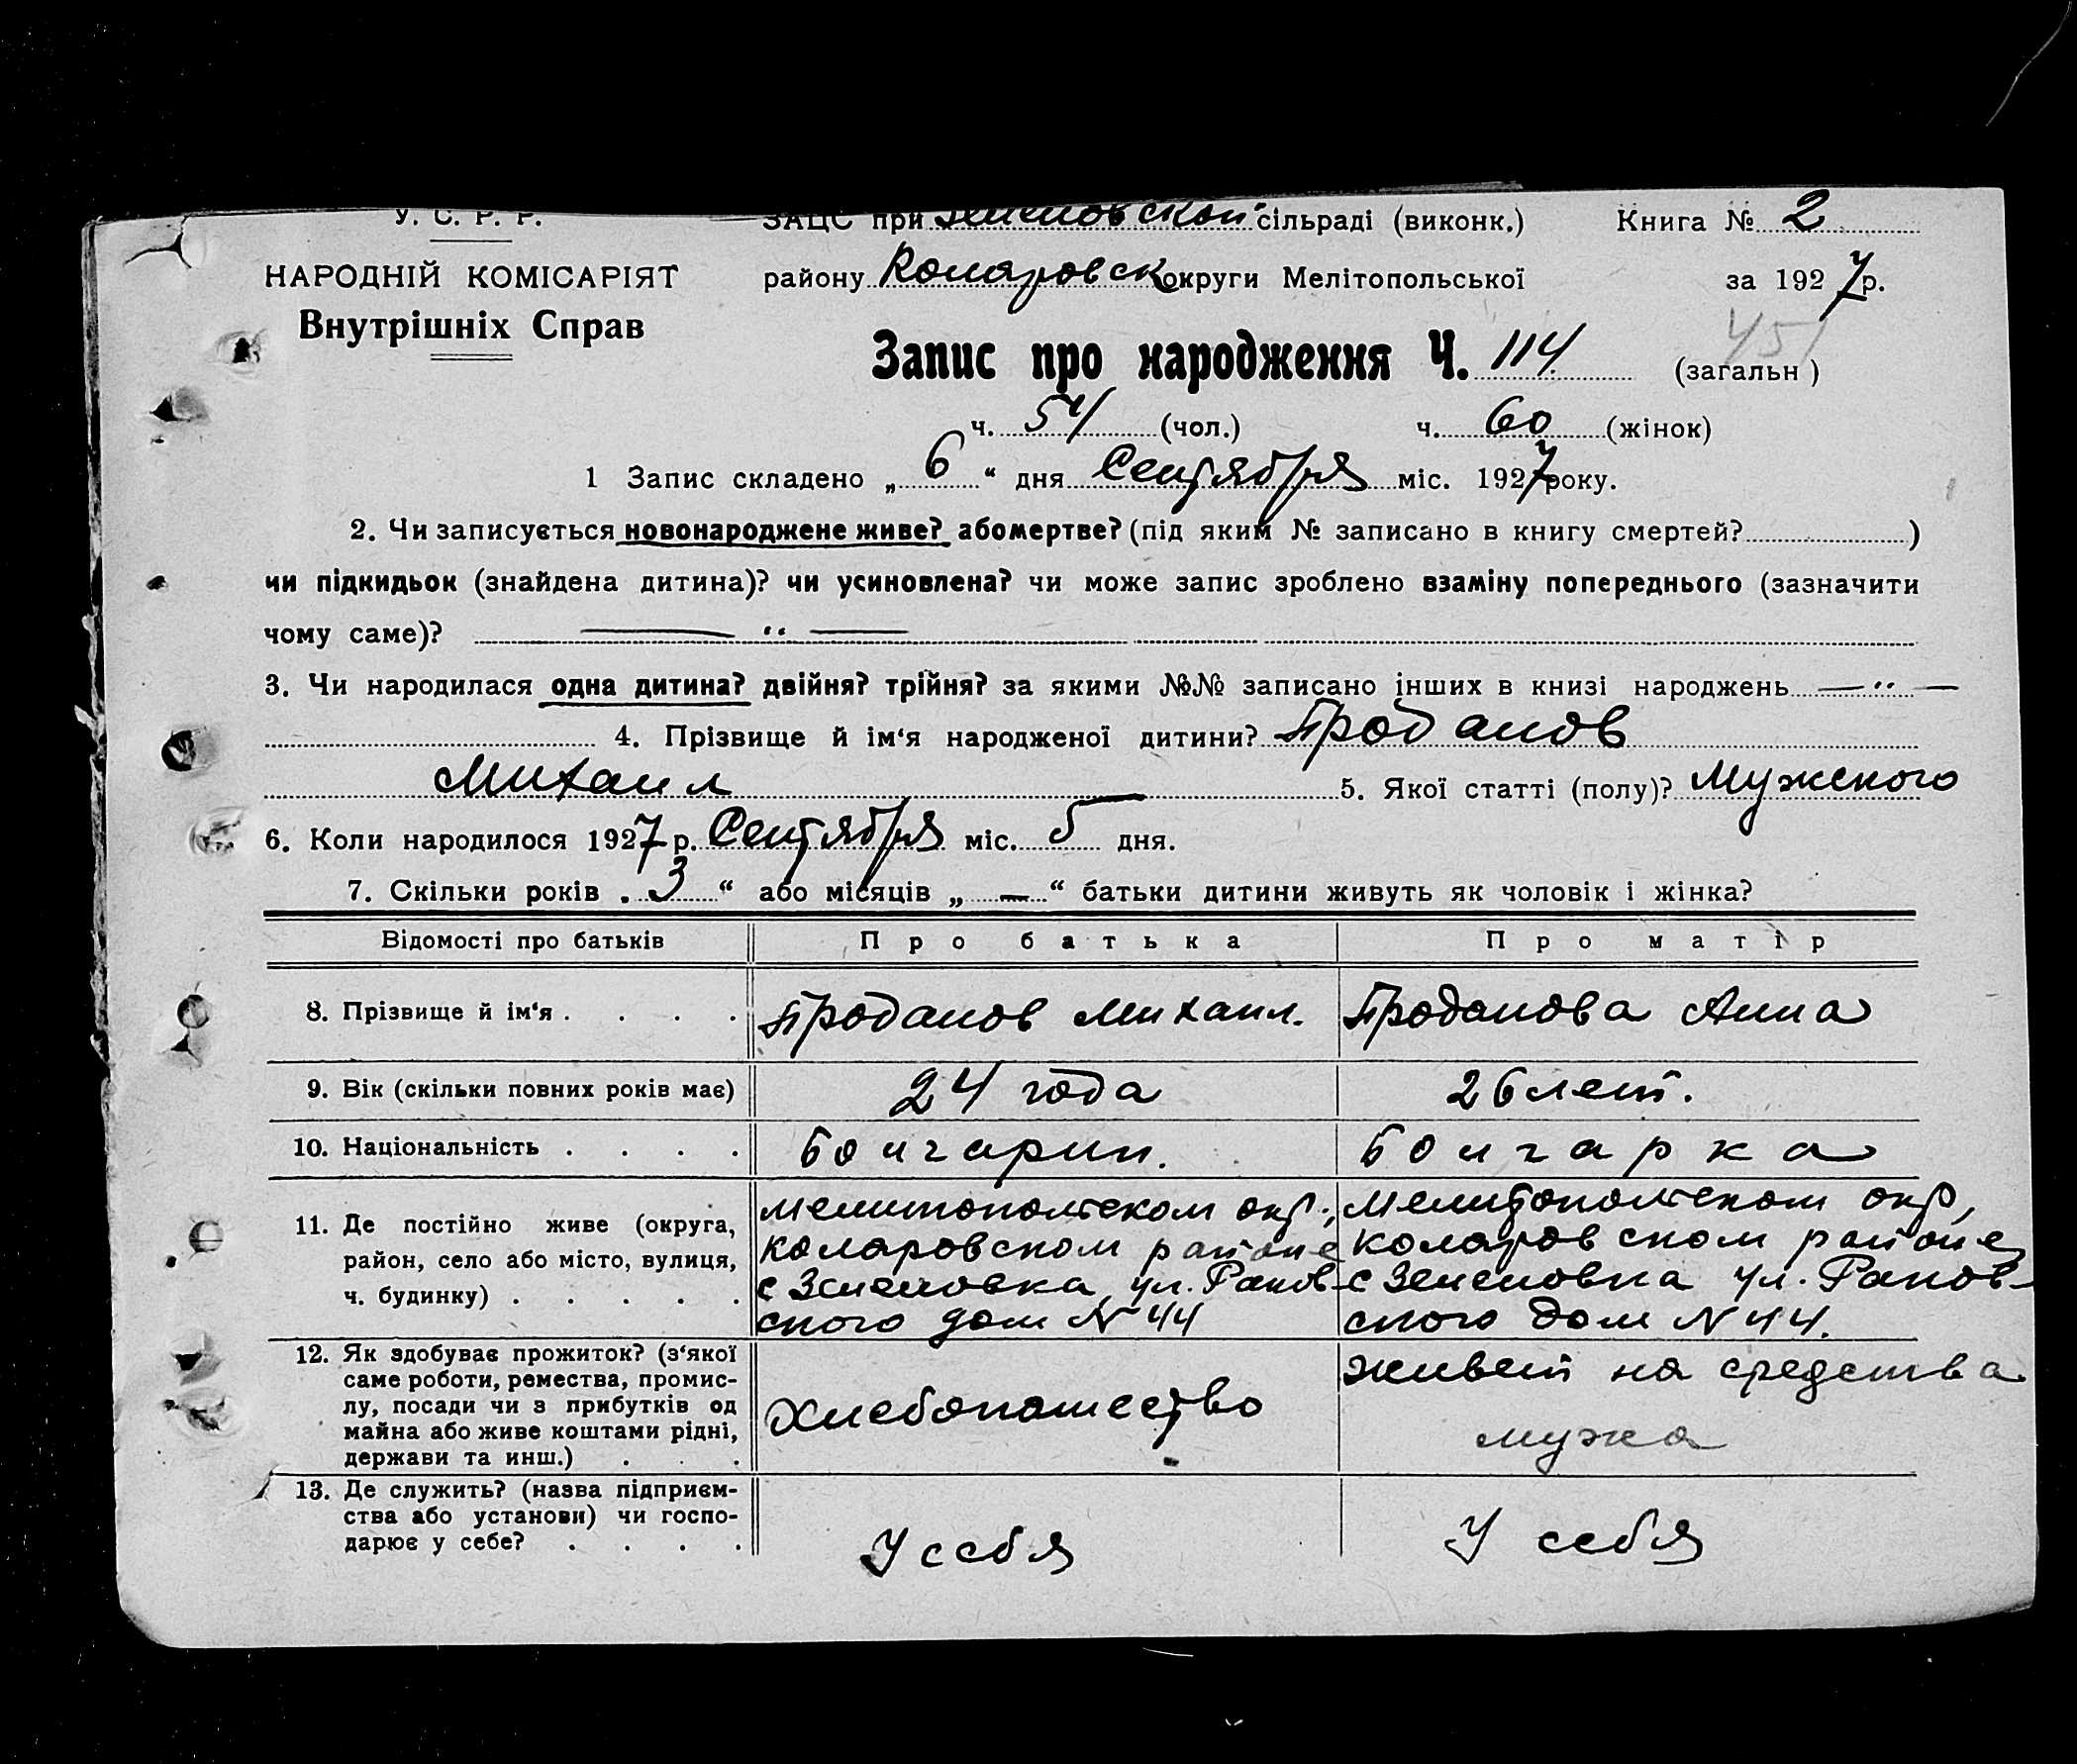 У. С. Р. Р.
ЗАЦС при сільраді (виконк.) Книга № 2
НАРОДНІЙ КОМІСАРІЯТ району Коляровск округи Мелітопольської за 1927 р.
Внутрішніх Справ
Запис про народження Ч. 114. (загальн)
451
ч. 54 (чол.) ч. 60 (жінок)
1 Запис складено „ 6 “ дня Сентября міс. 1927 року.
2. Чи записується новонароджене живе? або мертве? (під яким № записано в книгу смертей? )
чи підкидьок (знайдена дитина)? чи усиновлена? чи може запис зроблено взаміну попереднього (зазначити
чому саме)? — “ —
3. Чи народилася одна дитина? двійня? трійня? за якими №№ записано інших в книзі народжень — “ —
4. Прізвище й ім‘я народженої дитини? Проданов
Михаил 5. Якої статті (полу)? Мужского
6. Коли народилося 1927 р. Сентября міс. 5 дня.
7. Скільки років . 3 “ або місяців „ — “ батьки дитини живуть як чоловік і жінка?
Відомості про батьків Про батька Про матір
8. Прізвище й ім‘я . . . . Проданов Михаил. Проданова Анна
9. Вік (скільки повних років має) 24 года 26 лет.
10. Національність . . . . Болгарин. Болгарка
11. Де постійно живе (округа,
район, село або місто, вулиця,
ч. будинку) . . . . .
Мелитопольском окр.,
Коларовском районе
с Зеленовка, ул. Раков-
ского дом N 44
Мелитопольском окр,
Коларовском районе
с Зеленовка ул. Раков-
ского дом N 44.
12. Як здобуває прожиток? (з‘якої
саме роботи, ремества, промис-
лу, посади чи з прибутків од
майна або живе коштами рідні,
держави та инш.) . . .
Хлебопашество
живет на средства
мужа
13. Де служить? (назва підприєм-
ства або установи) чи госпо-
дарює у себе? . . . .
У себя
У себя